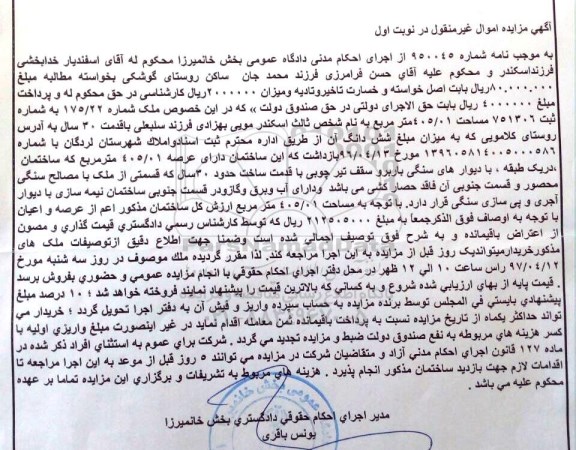 آگهي مزايده اموال غيرمنقول در نوبت اول
به موجب نامه شماره ۹۵۰۰۴۵ از اجرای احکام مدنی دادگاه عمومی بخش خانمیرزا محکوم له آقای اسفندیار خدابخشی
فرزنداسکندر و محکوم علیه آقای حسن فرامرزی فرزند محمد جان ساکن روستای گوشکی بخواسته مطالبه مبلغ
۸۰.۰۰۰.۰۰۰ریال بابت اصل خواسته و خسارت تاخیروتادیه ومیزان ۲۰۰۰۰۰۰ریال کارشناسی در حق محکوم له و پرداخت
مبلغ ۴۰۰۰۰۰۰ ریال بابت حق الاجرای دولتی در حق صندوق دولت » که در این خصوص ملک شماره ۱۷۵/۲۲ به شماره
ثبت ۷۵۱۳۰۶ مساحت ۴۰۵/۰۱متر مربع به نام شخص ثالث اسکندر مویی بهزادی فرزند سلبعلی باقدمت ۳۰ سال به آدرس
روستای کلامویی که به میزان مبلغ شش دانگ آن از طریق اداره محترم ثبت اسنادواملاک شهرستان لردگان با شماره
۱۳۹۶۰۵۸۱۴۰۰۵۰۰۰۵۸۶ مورخ ۹۶/۰۴/۱۳بازداشت که این ساختمان دارای عرصه ۴۰۵/۰۱ مترمربع که ساختمان
،دریک طبقه ، با دیوار های سنگی باربرو سقف تیر چوبی با قدمت ساخت حدود ۳۰سال که قسمتی از ملک با مصالح سنگی
محصور و قسمت جنوبی آن فاقد حصار کشی می باشد ودارای آب وبرق وگازودر قسمت جنوبی ساختمان نیمه سازی با دیوار
آجری و پی سازی سنگی قرار دارد. با توجه به مساحت ۴۰۵/۰۱ متر مربع ارزش کل ساختمان مذکور اعم از عرصه و اعیان
با توجه به اوصاف فوق الذکرجمعاً به مبلغ ۲۱۲۵۰۵۰۰۰ ریال که توسط کارشناس رسمي دادگستري قيمت گذاري و مصون
از اعتراض باقيمانده و به شرح فوق توصيف اجمالي شده است و جهت اطلاع دقیق ازتوصیفات ملک های
مذکورخریدارمیتواندیک روز قبل از مزایده به این اجرا مراجعه کند. لذا مقرر گرديده ملك موصوف در روز سه شنبه مورخ
۹۷/۰۴/۱۲ راس ساعت ۱۰ الي ۱۲ ظهر در محل دفتر اجراي احكام حقوقي با انجام مزايده عمومي و حضوري بفروش برسد
. قيمت پايه از بهاي ارزيابي شده شروع و به كساني كه بالاترين قيمت را پيشنهاد نمايند فروخته خواهد شد ؛ ۱۰ درصد مبلغ
پيشنهادي بايستي في المجلس توسط برنده مزايده به حساب سپرده واريز و فيش آن به دفتر اجرا تحويل گردد ؛ خريدار مي
تواند حداكثر يكماه از تاريخ مزايده نسبت به پرداخت باقيمانده ثمن معامله اقدام نمايد در غير اينصورت مبلغ واريزي اوليه با
كسر هزينه هاي مربوطه به نفع صندوق دولت ضبط و مزايده تجديد مي گردد . شركت براي عموم به استثناي افراد ذكر شده در
ماده ۱۲۷ قانون اجراي احكام مدني آزاد و متقاضيان شركت در مزايده مي توانند ۵ روز قبل از موعد به اين اجرا مراجعه تا
اقدامات لازم جهت بازديد ساختمان مذكور انجام پذيرد . هزينه هاي مربوط به تشريفات و برگزاري اين مزايده تماما بر عهده
محكوم عليه مي باشد .
مدير اجراي احكام حقوقي دادگستري بخش خانميرزا
یونس باقری